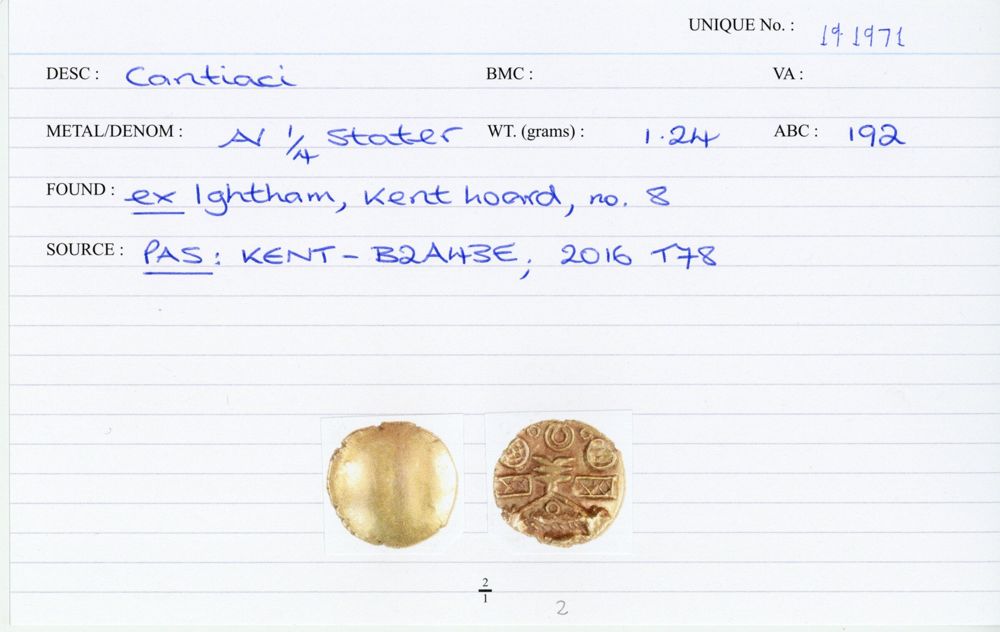 UNIQUE No. : 191971
DESC : Cantiaci BMC : VA :
METAL/DENOM : AV 1/4 stater WT. (grams) : 1.24 ABC : 192
FOUND : ex Ightham, Kent hoard, no. 8
SOURCE : PAS: KENT - B2A43E, 2016 T78
2/1
2